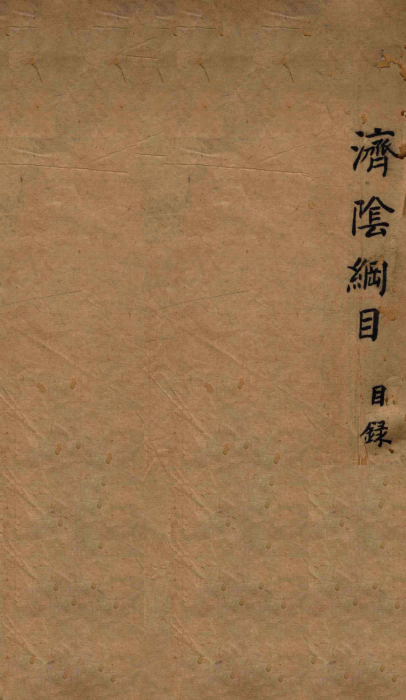 濟陰綱目
目録